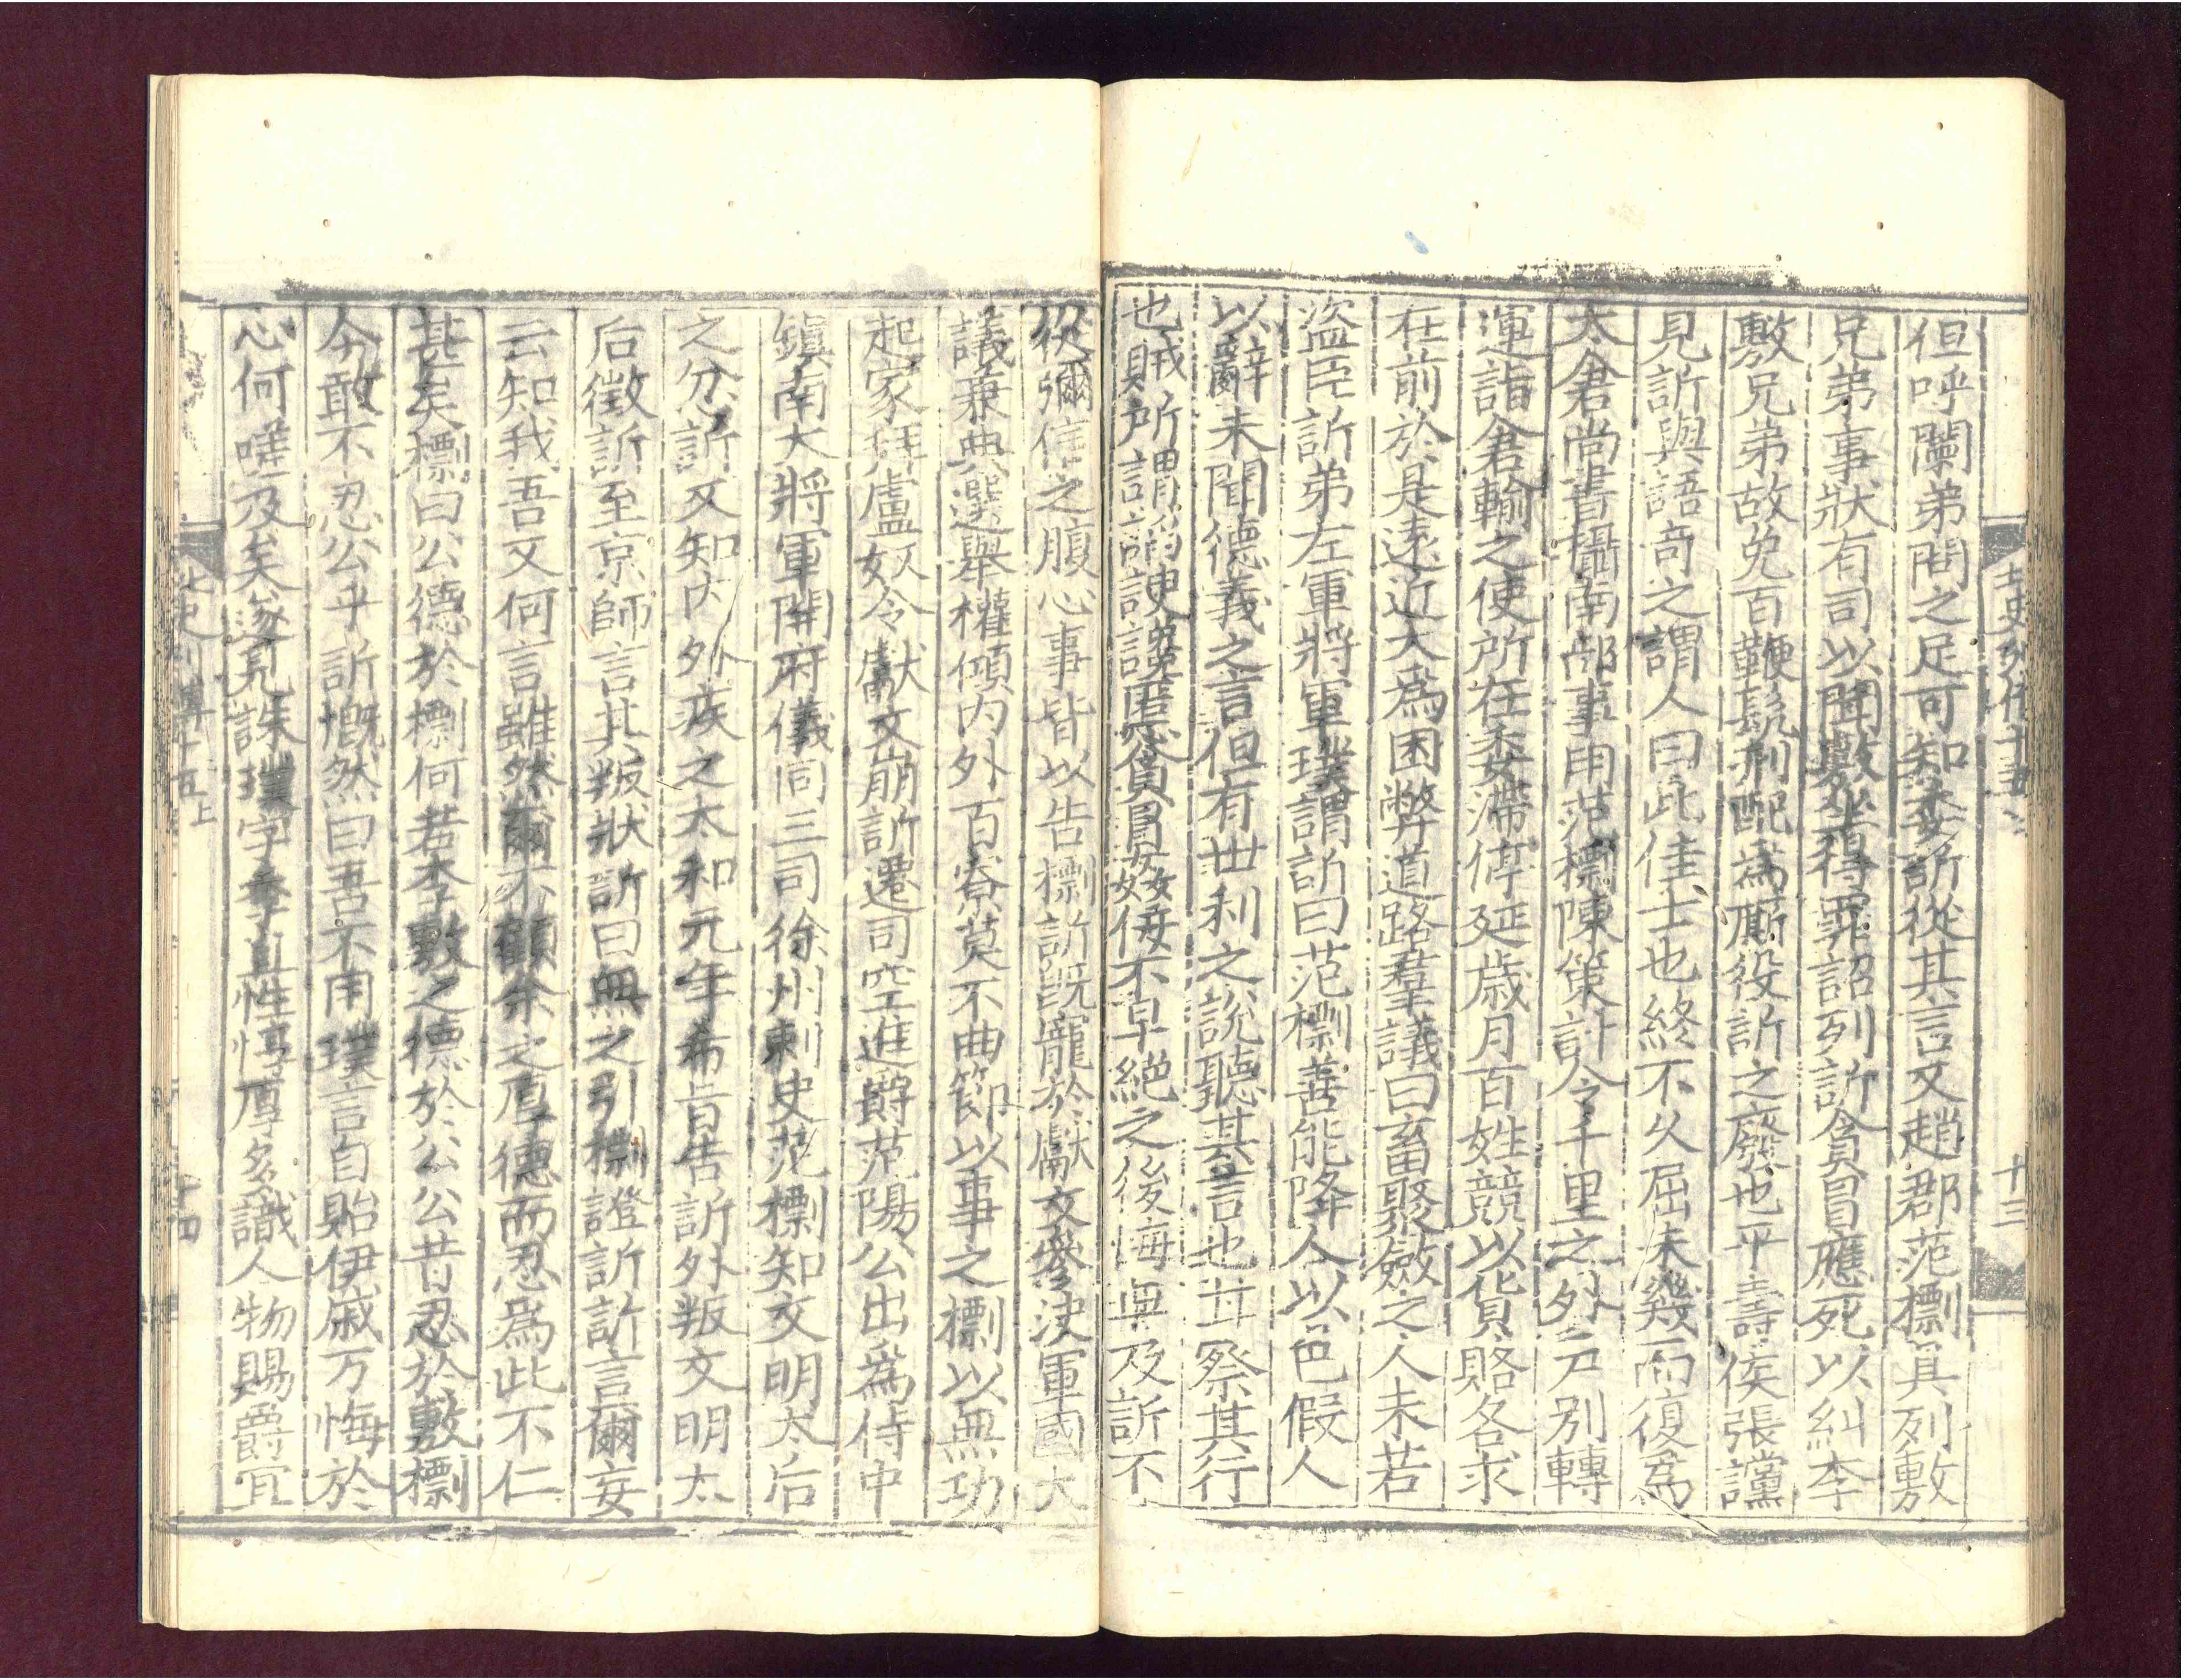 北史列傳十五上
十三
但呼闡弟問之足可知委訢從其言又趙郡范㯹具列敷
兄弟事狀有司以聞敷坐得罪詔列訢貪冒應死以糾李
敷兄弟故免百鞭髡刑配為厮役訢之廢也平壽侯張讜
見訢與語奇之謂人曰此佳士也終不久屈未幾而復為
太倉尚書攝南部事用范㯹陳策計令千里之外戶別轉
運詣倉輸之使所在委滯停延歲月百姓競以貨賂各求
在前於是遠近大為困弊道路羣議曰畜聚斂之人未若
盜臣訢弟左軍將軍璞謂訢曰范㯹善能降人以色假人
以辭未聞德義之言但有世利之說聽其言也甘察其行
也賊所謂諂諛讒慝貪冒姦佞不早絕之後悔無及訢不
從彌信之腹心事皆以告㯹訢既寵於獻文參決軍國大
議兼典選舉權傾内外百寮莫不曲節以事之㯹以無功
起家拜盧奴令獻文崩訢遷司空進爵范陽公出為侍中
鎮南大將軍開府儀同三司徐州刺史范㯹知文明太后
之忿訢又知内外疾之太和元年希旨告訢外叛文明太
后徵訢至京師言其叛狀訢曰無之引㯹證訢訢言爾妄
云知我吾又何言雖然爾不顧余之厚德而忍為此不仁
甚矣㯹曰公德於㯹何若李敷之德於公公昔忍於敷㯹
今敢不忍公乎訢慨然曰吾不用璞言自貽伊戚万悔於
心何嗟及矣遂見誅璞字季直性惇厚多識人物賜爵宜
北史列傳十五上
十四